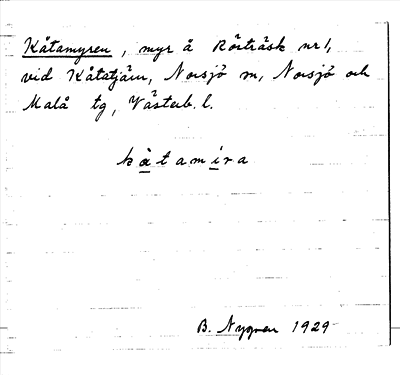 Kåtamyren, myr å Rörträsk nr 1,
vid Kåtatjärn, Norsjö sn, Norsjö och
Malå tg, Västerb. l.
kåtamira
B. Nygren 1929